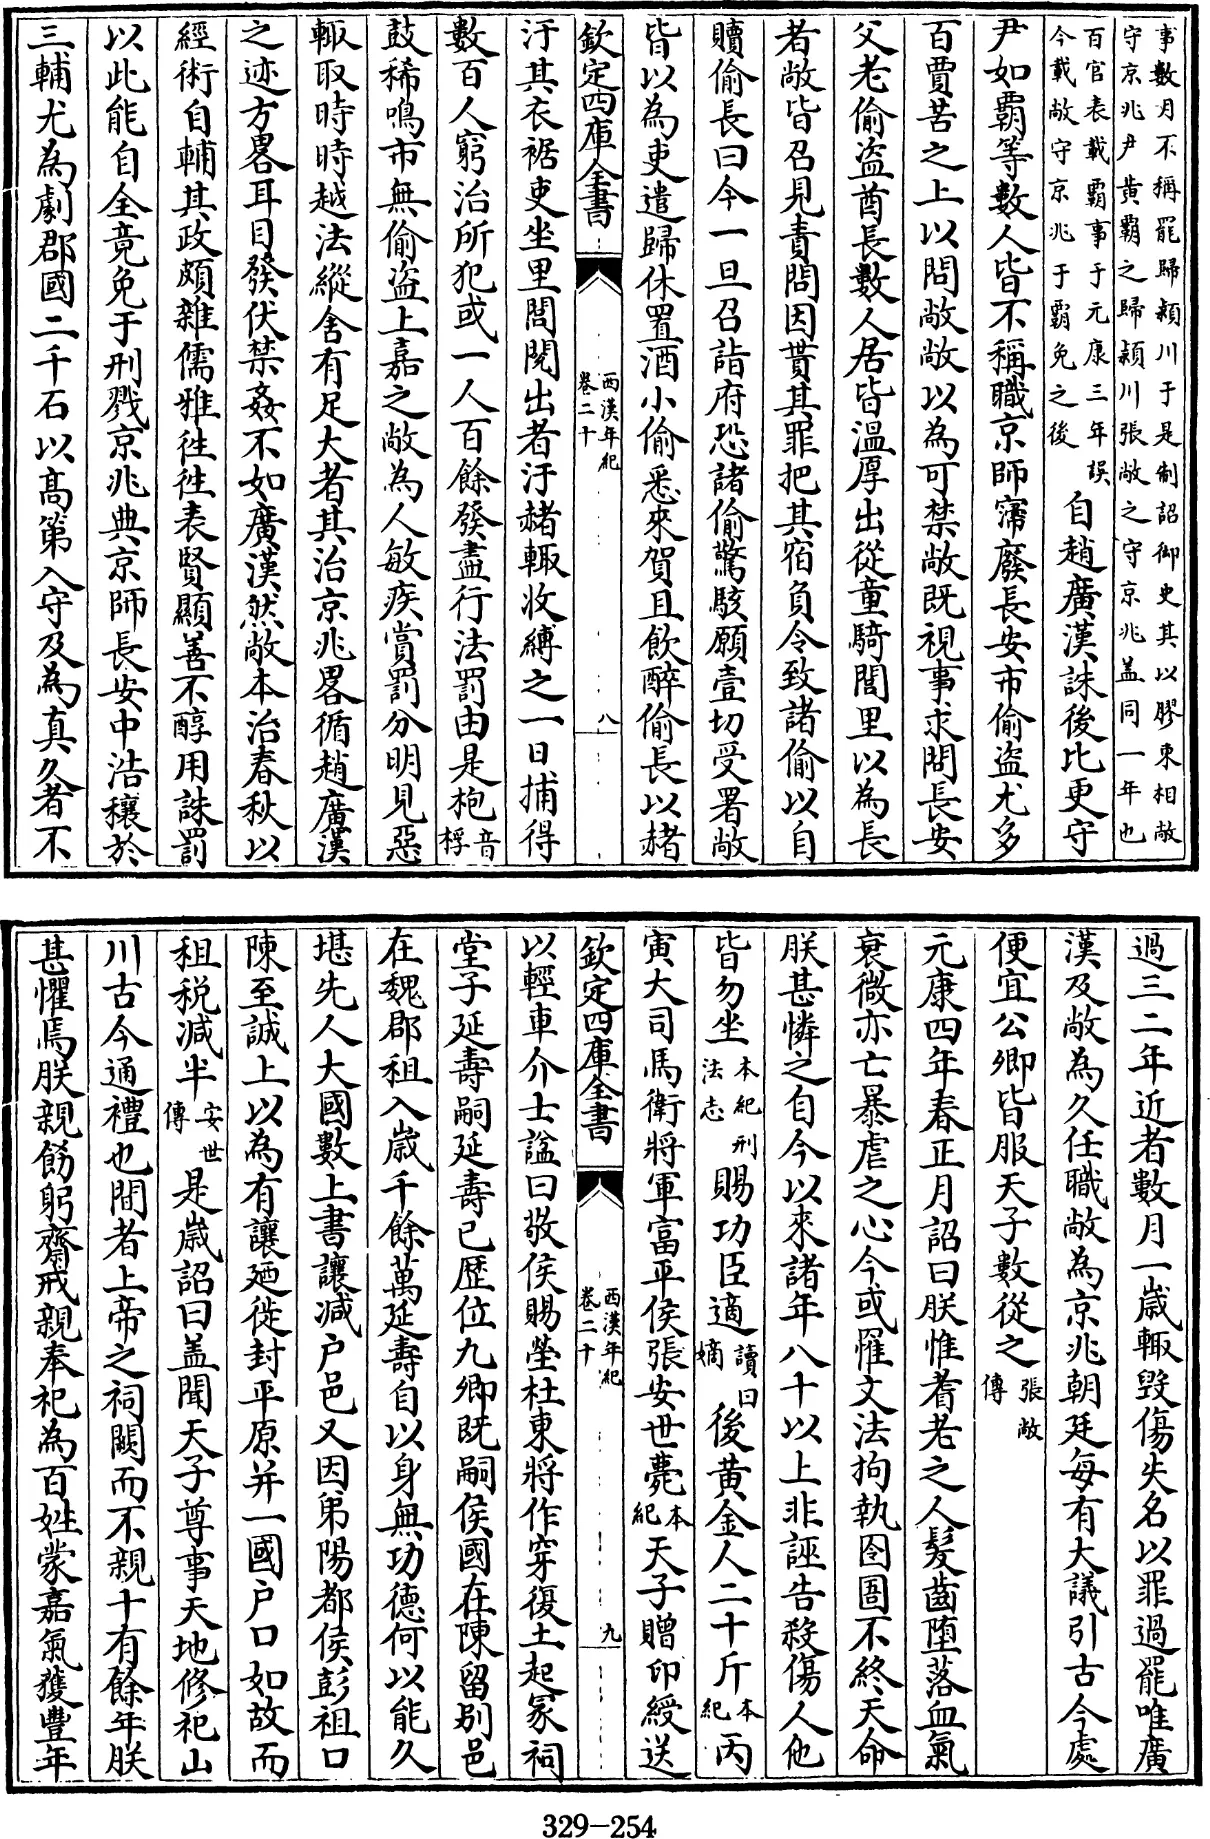 事數月不稱罷歸潁川于是制詔御史其以膠東相敞
守京兆尹黄霸之歸潁川張敞之守京兆盖同一年也
百官表載霸事于元康三年誤
今載敞守京兆于霸免之後
自趙廣漢誅後比更守
尹如霸等數人皆不稱職京師寖廢長安市偷盗尤多
百賈苦之上以問敞敞以為可禁敞既視事求問長安
父老偷盗酋長數人居皆温厚出從童騎閭里以為長
者敞皆召見責問因貰其罪把其宿負令致諸偷以自
贖偷長曰今一旦召詣府恐諸偷驚駭願壹切受署敞
皆以為吏遣歸休置酒小偷悉來賀且飲醉偷長以赭
欽定四庫全書
西漢年紀
卷二十
八
汙其衣裾吏坐里閭閱出者汙赭輒收縛之一日捕得
數百人窮治所犯或一人百餘發盡行法罰由是枹
音
桴
鼓稀鳴市無偷盗上嘉之敞為人敏疾賞罰分明見惡
輒取時時越法縱舍有足大者其治京兆畧循趙廣漢
之迹方畧耳目發伏禁姦不如廣漢然敞本治春秋以
經術自輔其政頗雜儒雅徃徃表賢顯善不醇用誅罰
以此能自全竟免于刑戮京兆典京師長安中浩穰於
三輔尤為劇郡國二千石以髙第入守及為真久者不
過三二年近者數月一歳輒毁傷失名以罪過罷唯廣
漢及敞為久任職敞為京兆朝廷每有大議引古今處
便宜公卿皆服天子數從之
張敞
傳
元康四年春正月詔曰朕惟耆老之人髮齒墮落血氣
衰微亦亡暴虐之心今或罹文法拘執囹圄不終天命
朕甚憐之自今以來諸年八十以上非誣告殺傷人他
皆勿坐
本紀刑
法志
賜功臣適
讀曰
嫡
後黄金人二十斤
本
紀
丙
寅大司馬衛將軍富平侯張安世薨
本
紀
天子贈印綬送
欽定四庫全書
西漢年紀
卷二十
九
以輕車介士諡曰敬侯賜塋杜東將作穿復土起冢祠
堂子延壽嗣延壽已歴位九卿既嗣侯國在陳留别邑
在魏郡租入歳千餘萬延壽自以身無功德何以能久
堪先人大國數上書讓减户邑又因弟陽都侯彭祖口
陳至誠上以為有讓廼徙封平原并一國户口如故而
租税减半
安世
傳
是歳詔曰盖聞天子尊事天地修祀山
川古今通禮也間者上帝之祠闕而不親十有餘年朕
甚懼焉朕親飭躬齋戒親奉祀為百姓蒙嘉氣獲豐年
329-254